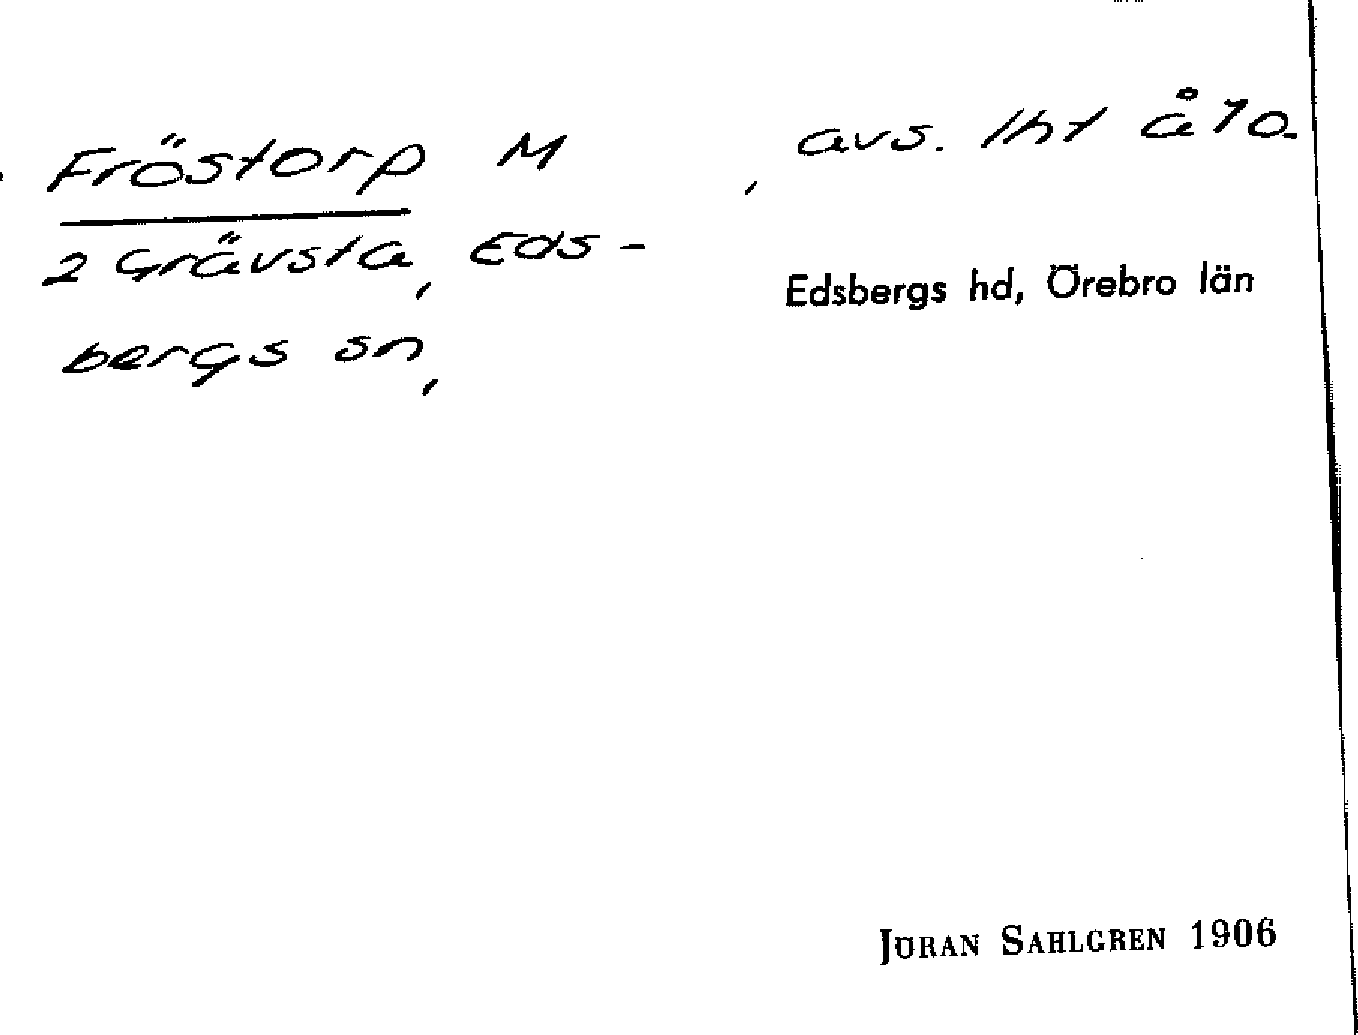 Fröstorp M
, avs. lht å 10.
2 Grävsta, Eds-
bergs sn,
Edsbergs hd, Örebro län
JÖRAN SAHLGREN 1906